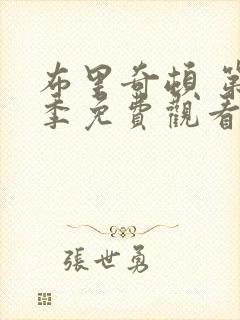 布里奇頓 第
季免費觀看
張世勇